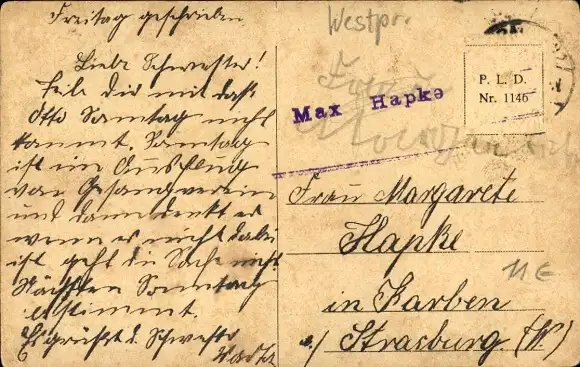 Freitag geschrieben
Liebe Schwester!
Teile Dir mit daß
Otto Sonntag nicht
kommt. Sonntag
ist ein Ausflug
vom Gesangverein
und dann denkt er
wenn er nicht dabei
ist geht die Sache nicht
Nächsten Sonntag
bestimmt.
Es grüßt d. Schwester
Westpr.
Max Hapke
P. L. D.
Nr. 1146
Frau Margarete
Hapke
in Karben
Strasburg (W)
11 €